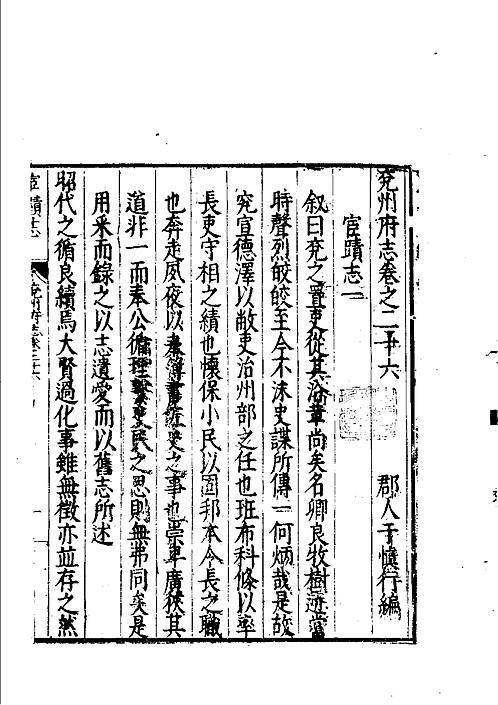 兖州府志卷之二十六 郡人于慎行編
宦蹟志一
叙曰兖之置吏從其沿革尚矣名卿良牧樹迹當
時聲烈皎皎至今不沬史諜所傳一何炳哉是故
究宣德澤以敝吏治州部之任也班布科條以率
長吏守相之績也懷保小民以固邦本令長之職
也奔走夙夜以 簿書 史之事也崇卑廣狹其
道非一而奉公循理 吏民之思則無弗同矣是
用釆而錄之以志遺愛而以舊志所述
昭代之循良續焉大賢過化事雖無徵亦並存之然
宦蹟志
兖州府志卷二十六
一